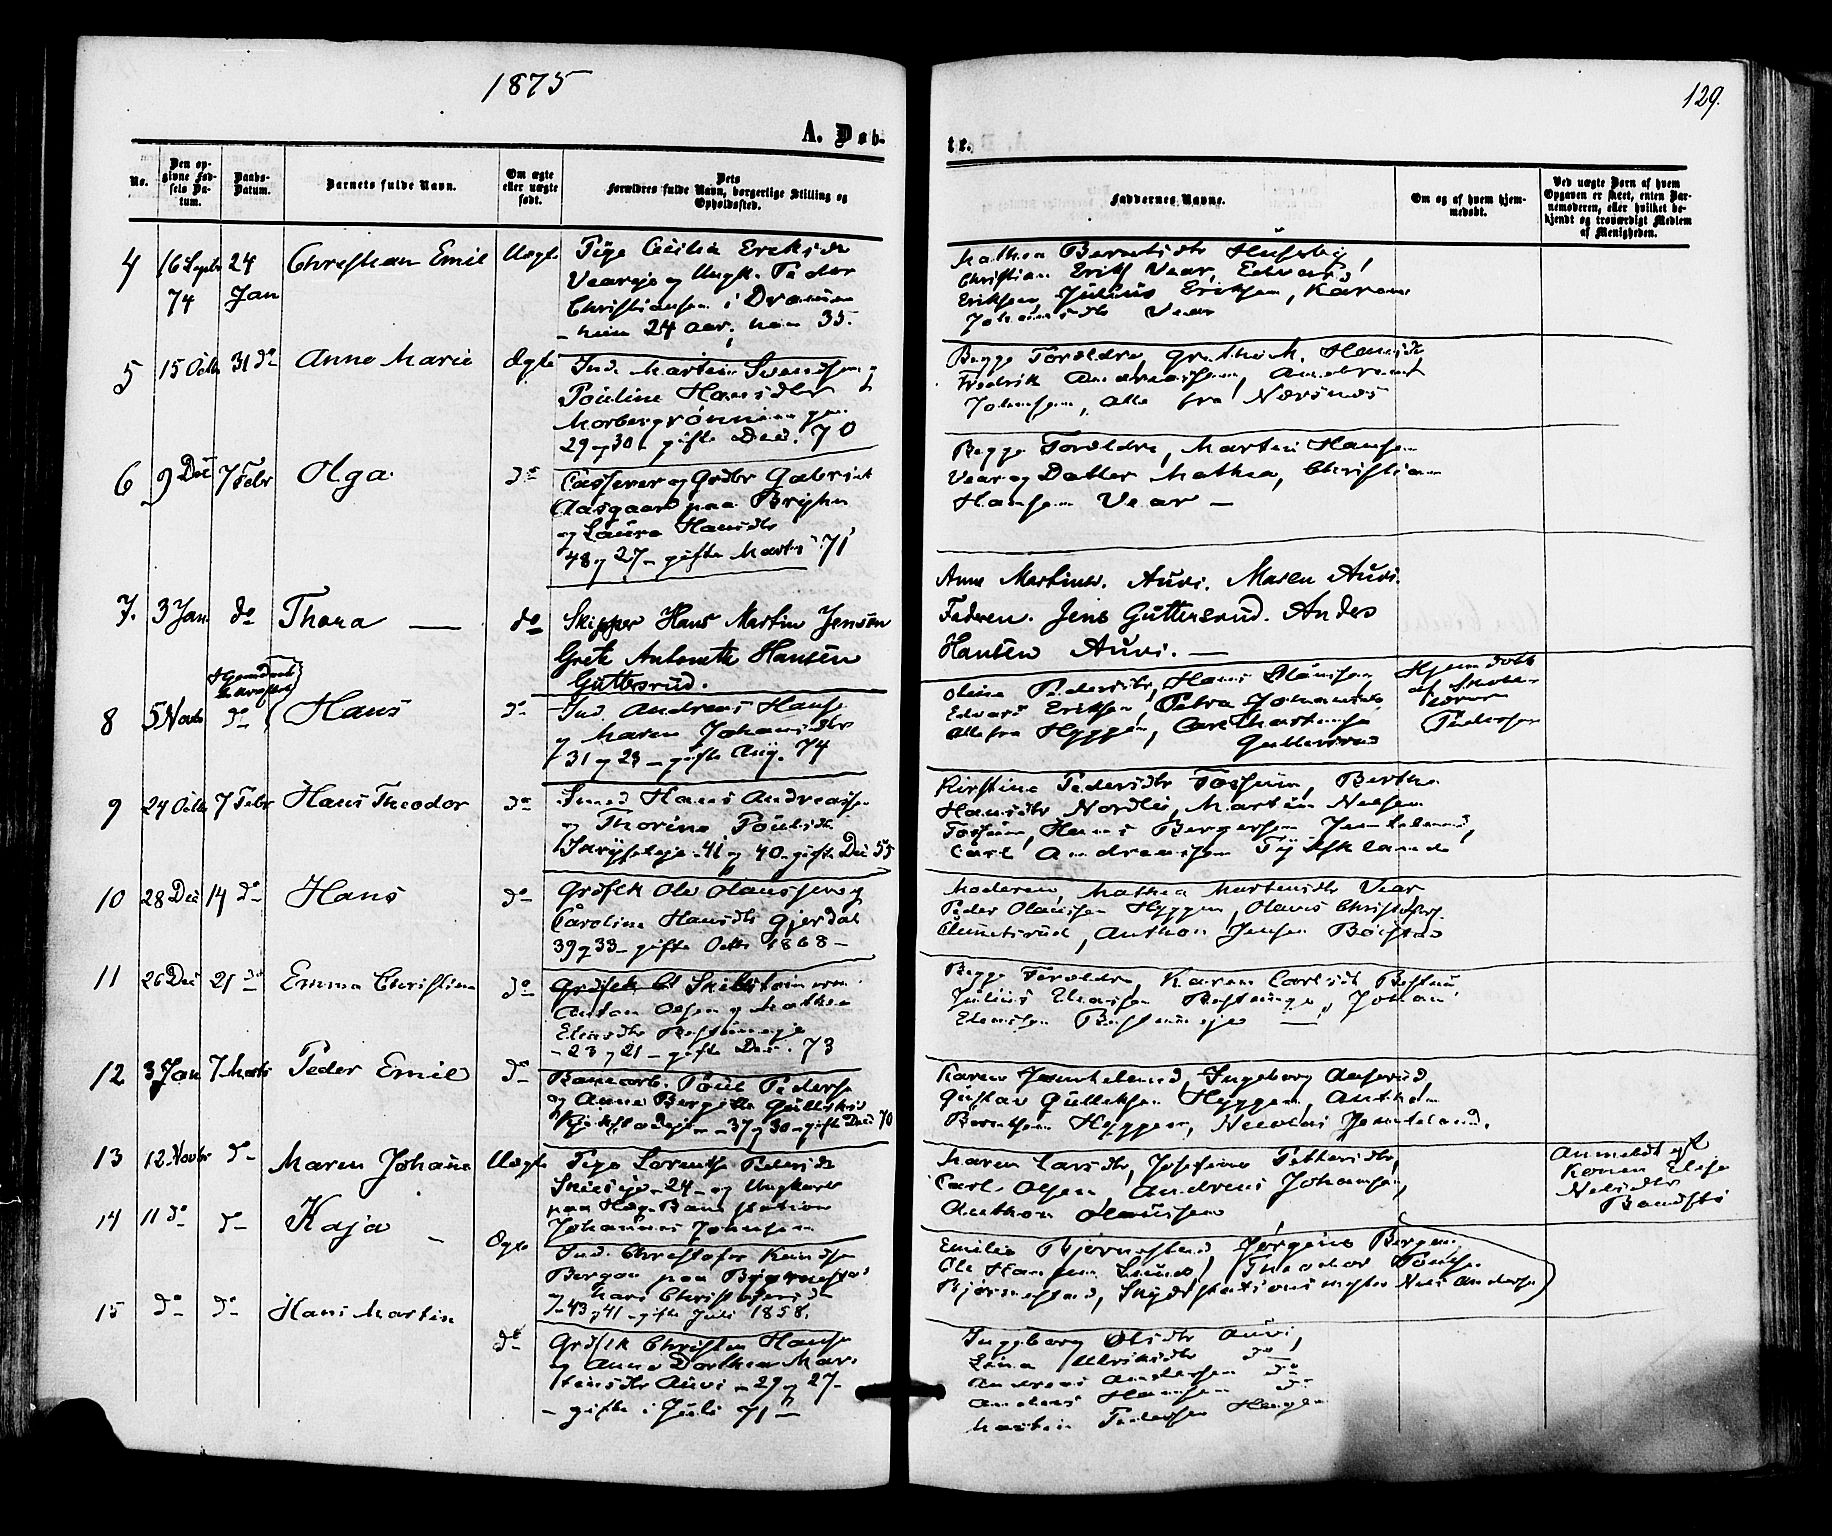 1875
129.
A. Døb-
te.
No.
Den op-
givne Fød-
sels Da-
tum.
Daabs-
Datum.
Barnets fulde Navn.
Om ægte
eller uægte
født.
Dets
Forældres fulde Navn, borgerlige Stilling og
Opholdssted.
Faddernes Navne.
Om og af hvem hjem-
medøbt.
Ved uægte Børn af hvem
Opgaven er skeet, enten Bar-
nemoderen, eller hvilket be-
kjendt og troværdigt Medlem
af Menigheden.
4 16 Septbr 24 Christian Emil Uægte Pige Cecilia Eriksdr
74 Jan
Veareje og Ungk. Peder
Christiansen i Drammen
24 aar, han 35.
Mathea Berntsdtr Huseby,
Christian Erik Vear, Edvard
Eriksen, Julius Eriksen, Karen
Johannsdtr Vear
5 15 Octb 31 do Anne Marie Ægte Ind. Martin Svendsen og
Pauline Hansdtr
29 og 30 gifte Decb. 70
Begge Forældre, Grethe M. Hansdtr
Fredrik Andreassen, Anebrant
Johnsen, alle fra Nærsnæs
6 9 Dec 7 Febr Olga do
Aasgaard paa Bryhn
og Laura Hansdtr
48 og 27 - gifte Marts 71
Begge Forældre, Martin Hansen
Vear og Datter Mathea, Christian
Hansen Vear —
7. 3 Jan do Thora — do Skipper Hans Martin Jensen
Grete Antonette Hansen
Guttersrud.
Anne Martinsd. Auvi. Maren Auvi.
Faderen. Jens Guttersrud. Anders
Hansen Auvi. —
8 5 Novb do Hans do Ind. Andreas Hans
og Maren Johansdtr
31 og 23 - gifte Aug. 74
Oline Pedersdtr, Hans Olaussen,
Edvard Eriksen, Petra Johansd
alle fra Hyggen, Carl
Guttersrud
Hjemdøbt
af Skole-
lærer
Pedersen
9 24 Octb 7 Febr Hans Theodor do Smed Hans Andreassen
og Thorine Paulsdtr
41 og 40 - gifte Dec 55
Kirstine Pedersdtr Fossum, Berthe
Hansdtr Nordli, Martin Nelsen
Fossum, Hans Bergersen Jemteland,
Carl Andreassen Tydskland
10 28 Dec 14 do Hans do Grdfelk Ole Olaussen og
Caroline Hansdtr Gjerdal
39 og 33 - gifte Octb 1868 -
Moderen, Mathea Martinsdtr Vear
Peder Olaussen Hyggen, Olaves Christoffers.
Anthon Jensen
11 26 Dec 21 do Emma Christine do
Anton Olsen og Mathea
- 23 og 21 - gifte Dec. 73
Begge Forældre, Karen Carlsdt
Julius Johan
12 3 Jan 7 Marts Peder Emil do Banearb. Paul Peders
og Anne Bergitte Gulliksd
37 og 30 - gifte Dec 70
Karen Jemteland, Ingeborg
Gustav Gulliksen Hyggen, Anthon
Berntsen Hyggen, Nicolai Jemteland.
13 12 Novbr do Maren Johane Uægte Pige Lorentse Pedersdt
24 - og Ungkarl
paa Station
Johannes Johnsen
Maren Larsdtr, Josefine Pettersdtr,
Carl Olsen, Andreas Johansen,
Anthon Olaussen
Anmeldt af
Konen Elise
Nelsdtr
14 11 do do Kaja - Ægte Ind. Christofer Knudsen
Bergan paa Bjørnestad
og Mari Christofersd
43 og 41 - gifte Juli 1858.
Emilie Bjørnestad, Jørgine Bergan,
Ole Hansen Theodor Pauls.
Bjørnestad, Skydsstationsmester Nels Anders
15 do do Hans Martin do Grdfelk Christen Hans
og Anne Dorthea Mar-
tinsdtr Auvi - 29 og 27 -
- gifte i Juli 71 —
Ingeborg Olsdtr Auvi,
Lina Ulriksdtr do
Andreas Andersen do
Anders Hansen do
Martin Pedersen